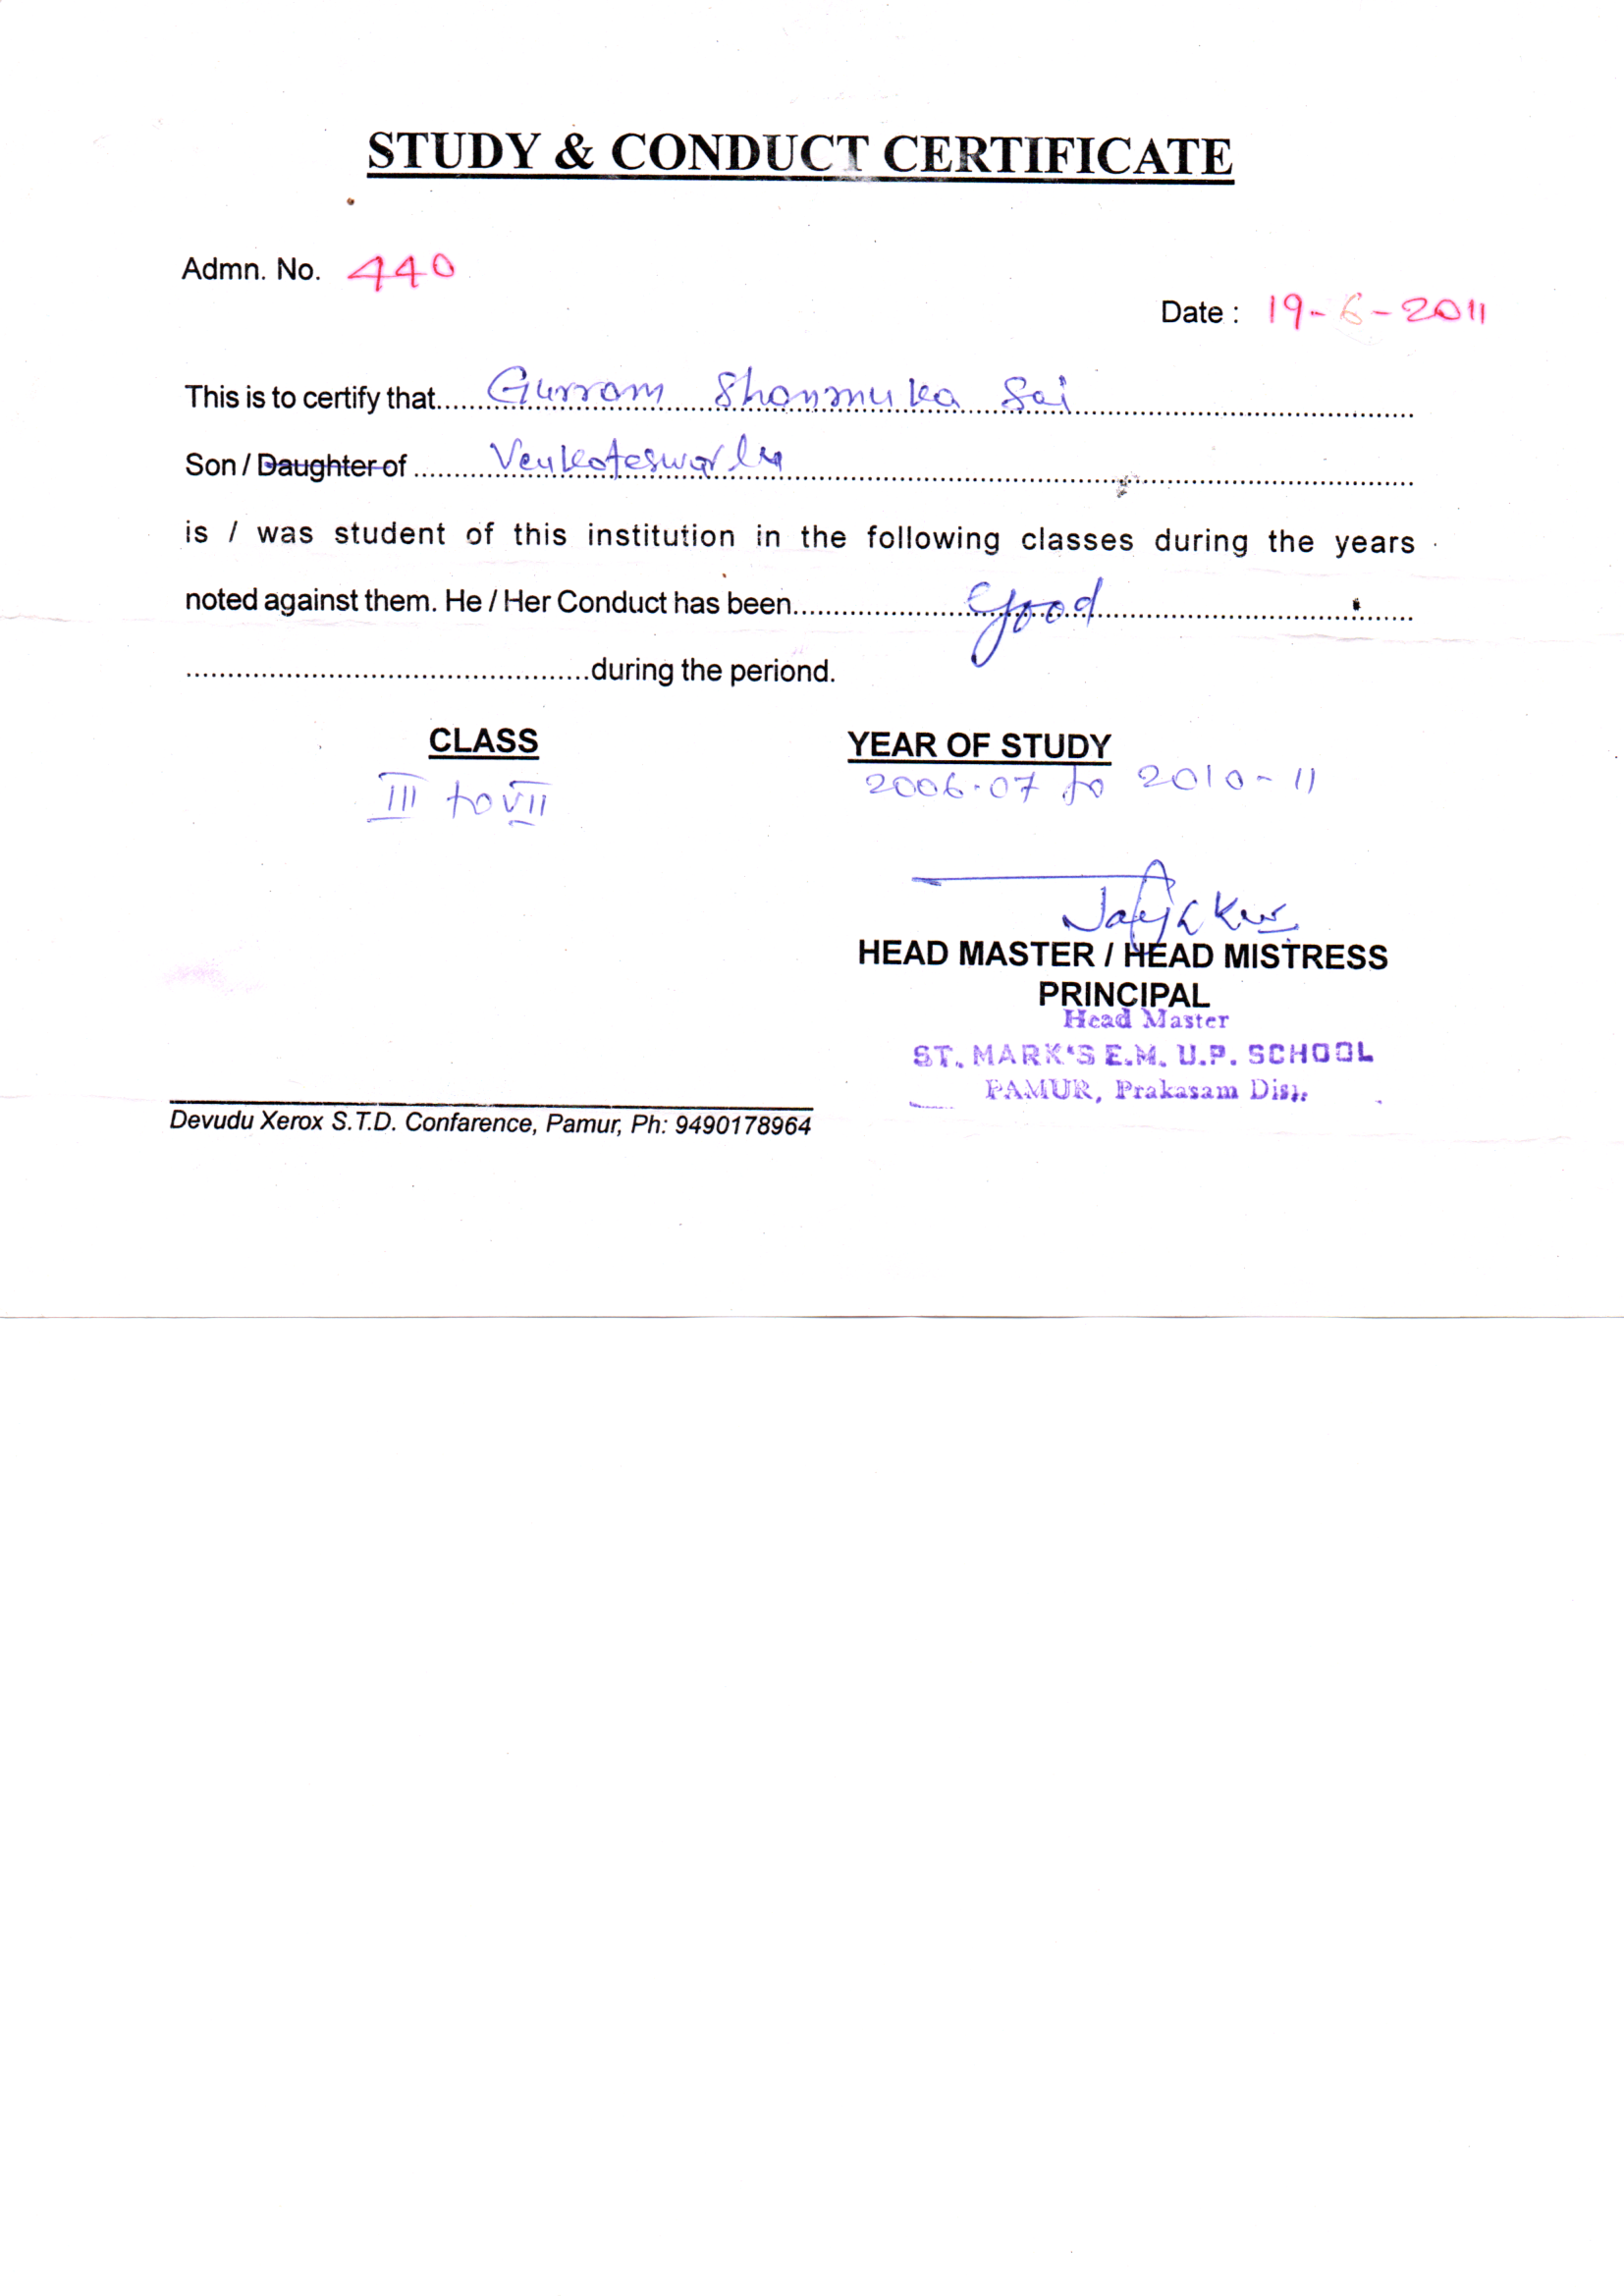 STUDY & CONDUCT CERTIFICATE
Admn. No. 440
Date : 19-6-2011
This is to certify that Gurram Shanmuka Sai
Son / Daughter of Venkateswarlu
is / was student of this institution in the following classes during the years
noted against them. He / Her Conduct has been Good
during the periond.
CLASS YEAR OF STUDY
III to VII 2006-07 to 2010-11
HEAD MASTER / HEAD MISTRESS
PRINCIPAL
Head Master
ST. MARK'S E.M. U.P. SCHOOL
PAMUR, Prakasam Dist.
Devudu Xerox S.T.D. Confarence, Pamur, Ph: 9490178964